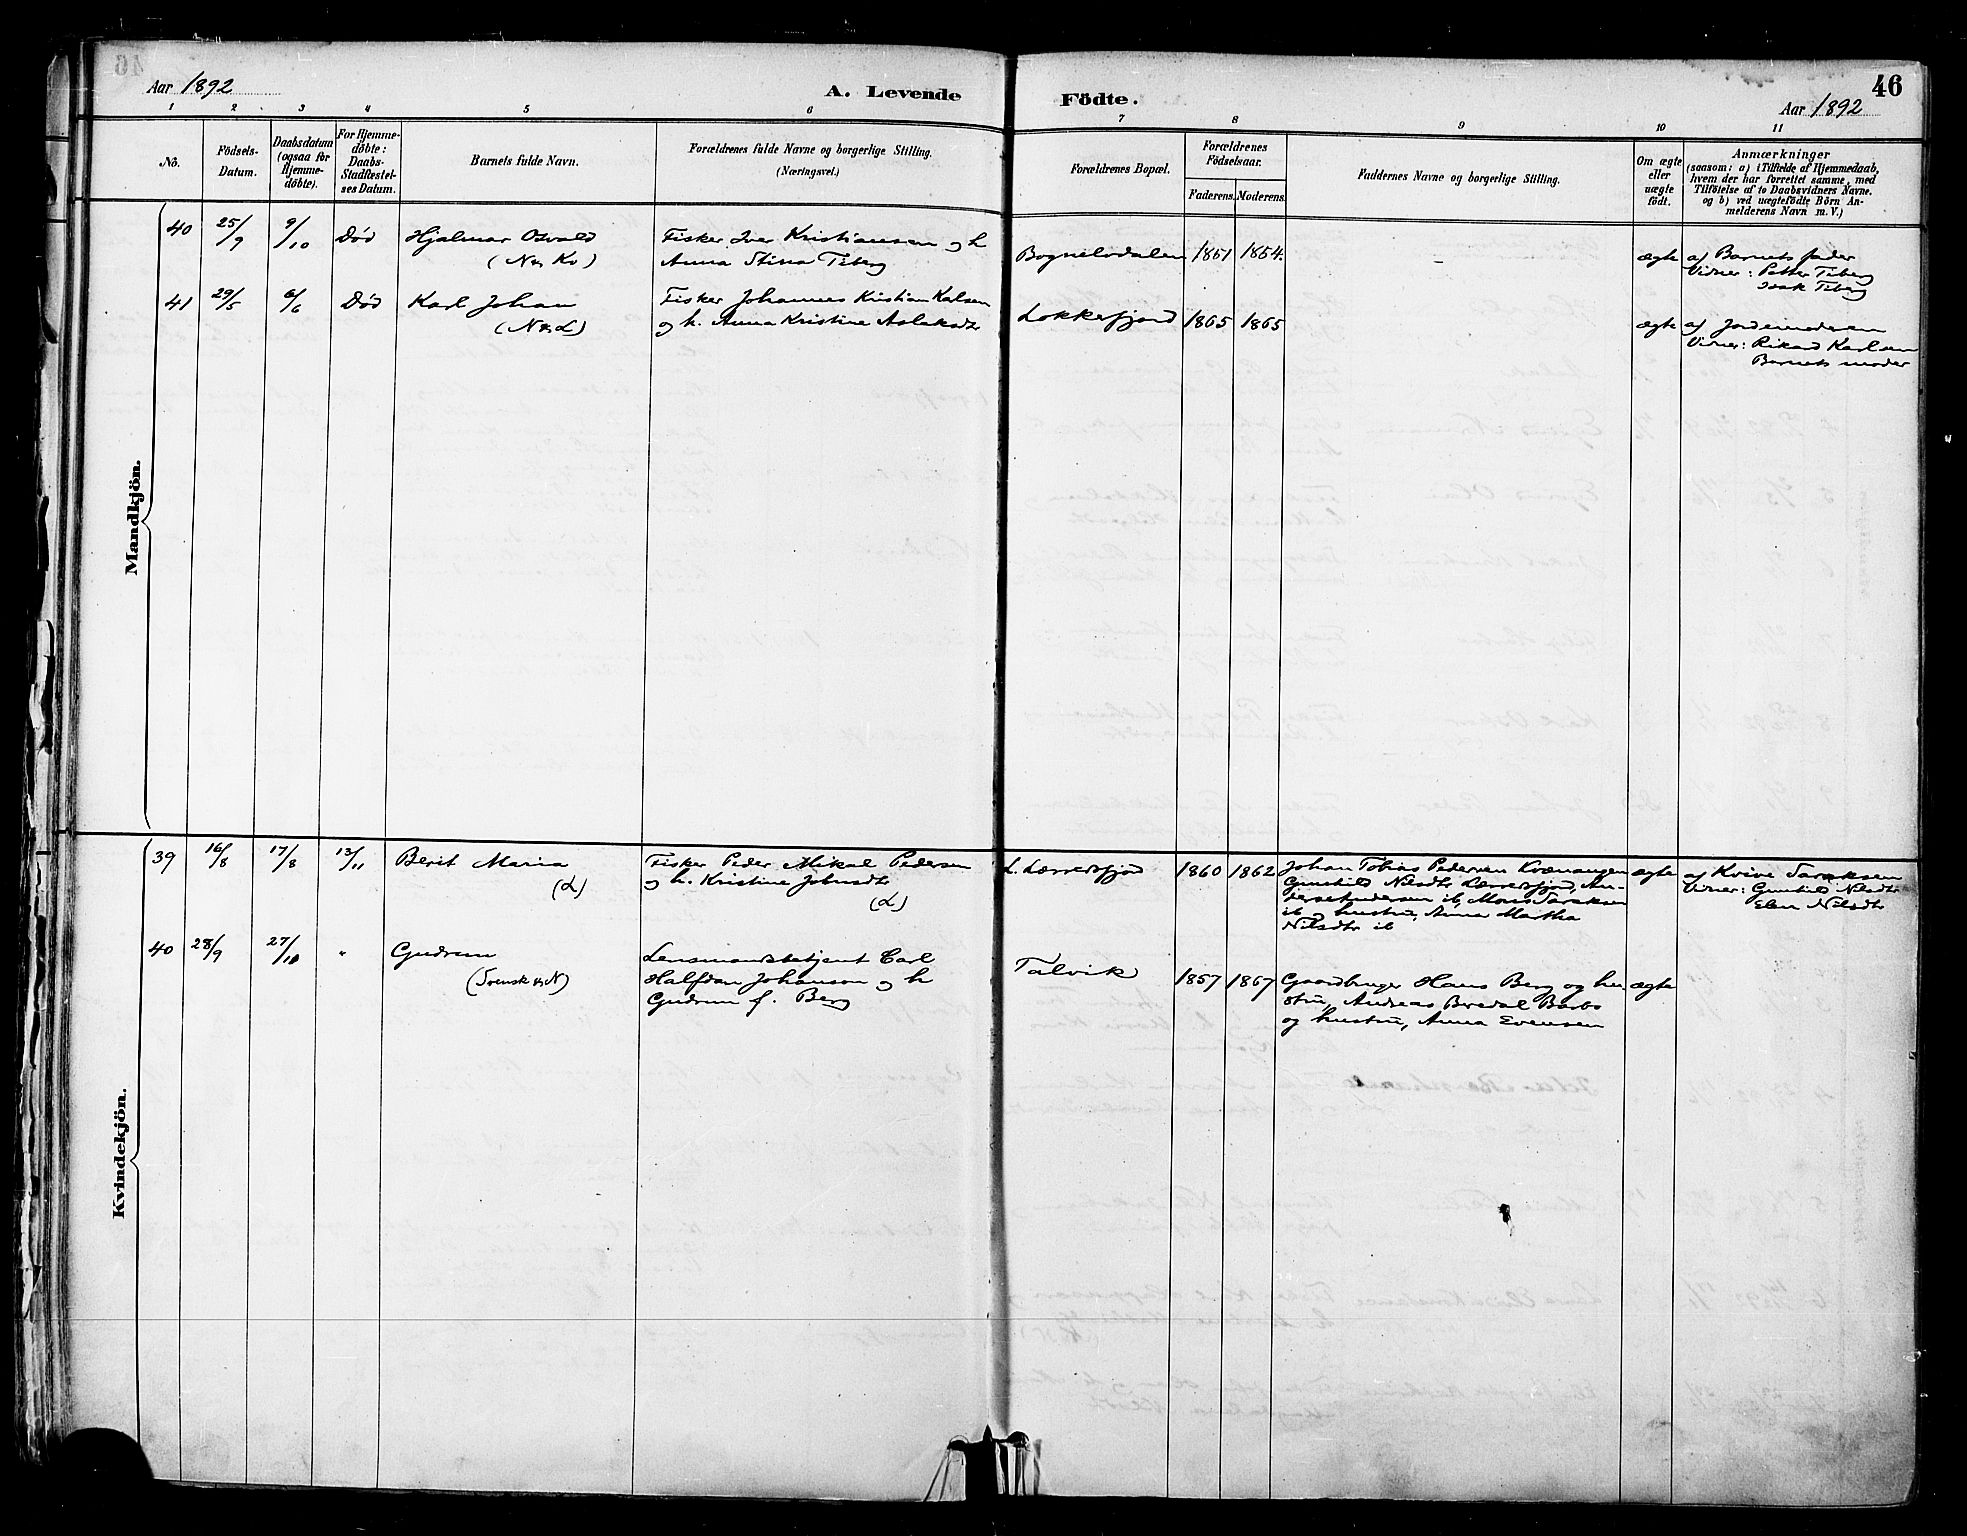 46
Aar 1892
A. Levende Födte.
Aar 1892
1 2 3 4 5 6 7 8 9 10 11
No.
Födsels-
Datum.
Daabsdatum
(ogsaa for
Hjemme-
döbte).
For Hjemme-
döbte:
Daabs-
Stadfæstel-
ses Datum.
Barnets fulde Navn.
Forældrenes fulde Navne og borgerlige Stilling.
(Næringsvei.)
Forældrenes Bopæl.
Forældrenes
Födselsaar.
Faderens. Moderens.
Faddernes Navne og borgerlige Stilling.
Om ægte
eller
uægte
födt.
Anmærkninger
(saasom: a) i Tilfælde af Hjemmedaab,
hvem der har forrettet samme, med
Tilföielse af to Daabsvidners Navne.
og b) ved uægtefödte Börn An-
melderens Navn m. V.)
Mandkjön.
40 25/9 9/10 Död Hjalmar Osvald
(N & Kv)
Fisker Iver Kristiansen og h
Anna Stina Tiberg
Bognelvdalen 1851 1854. - ægte af Barnets fader
Vidner: Petter Tiberg
Isak Tiberg
41 29/5 6/6 Död Karl Johan
(N & L)
Fisker Johannes Kristian Karlsen
og h. Anna Kristine Aslaksdtr
Lokkefjord 1865 1865 ægte af Jordemoderen
Vidner: Rikard Karlsen
Barnets moder
Kvindekjön.
39 16/8 17/8 13/11 Berit Maria
(L)
Fisker Peder Mikal Pedersen
og h. Kristine Johnsdtr
(L)
L. Lærresfjord 1860 1862 Johan Tobias Pedersen Kvænangen
Gunhild Nilsdtr Lærresfjord, An-
ders Andersen ib, Mons Saraksen
ib og hustru, Anne Martha
Nilsdtr ib
ægte af Kvive Saraksen
Vidner: Gunhild Nilsdtr
Elen Nilsdtr
40 28/9 27/10 " Gudrun
(Svensk & N)
Lensmandsbetjent Carl
Halfdan Johanson og h
Gudrun f. Berg
Talvik 1857 1867 Gaardbruger Hans Berg og hu-
stru, Andreas Bredal Barbo
og hustru, Anna Evensen
ægte